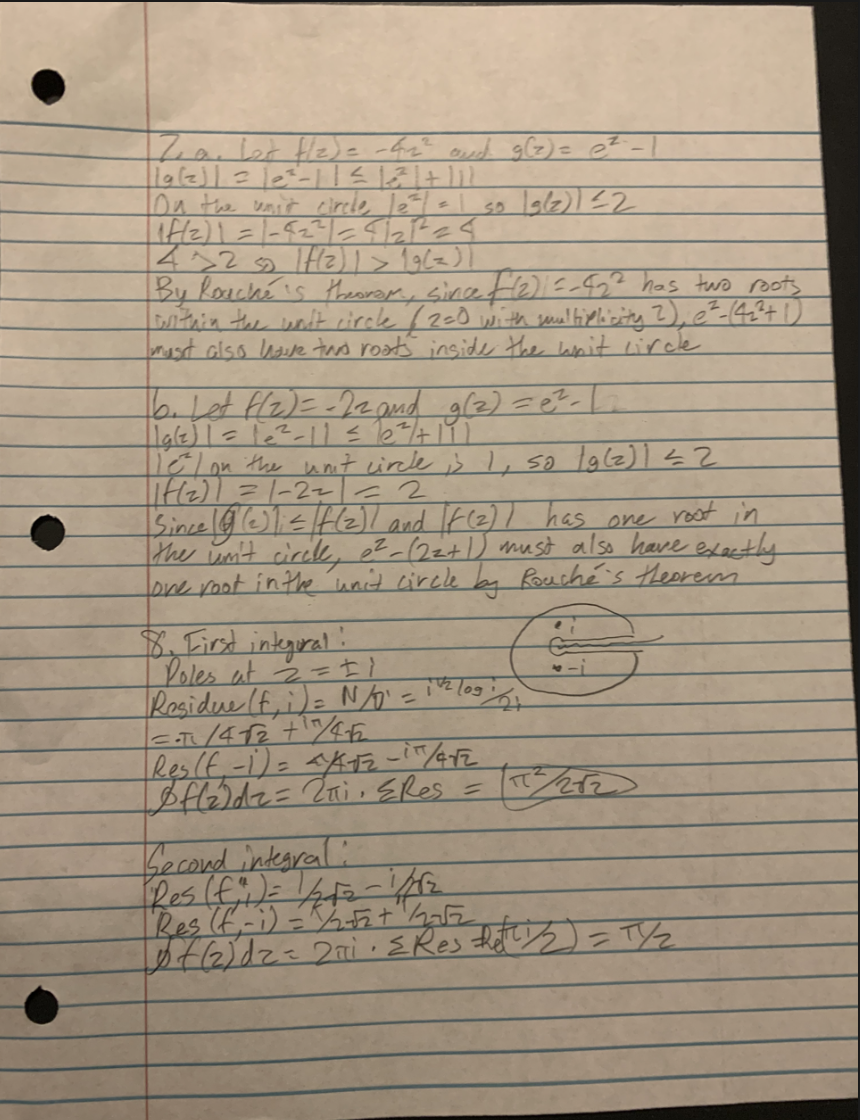 7. a. Let f(z) = -4z² and g(z) = e^z - 1
|g(z)| = |e^z - 1| ≤ |e^z| + |1|
On the unit circle |e^z| = 1 so |g(z)| ≤ 2
|f(z)| = |-4z²| = 4|z|² = 4
4 > 2 so |f(z)| > |g(z)|
By Rouché's theorem, since f(z) = -4z² has two roots
within the unit circle (z=0 with multiplicity 2), e^z - (4z²+1)
must also have two roots inside the unit circle
b. Let f(z) = -2z and g(z) = e^z - 1
|g(z)| = |e^z - 1| ≤ |e^z| + |1|
|e^z| on the unit circle is 1, so |g(z)| ≤ 2
|f(z)| = |-2z| = 2
Since |g(z)| ≤ |f(z)| and |f(z)| has one root in
the unit circle, e^z - (2z+1) must also have exactly
one root in the unit circle by Rouché's theorem
8. First integral:
• i
• -i
Poles at z = ± i
Residue(f, i) = N/D' = i^1/2 log i/2i
= π/4√2 + iπ/4√2
Res(f, -i) = π/4√2 - iπ/4√2
∮f(z)dz = 2πi · ΣRes = π²/2√2
Second integral:
Res(f, i) = 1/2√2 - i/2√2
Res(f, -i) = 1/2√2 + i/2√2
∮f(z)dz = 2πi · ΣRes = Re(πi/2) = π/2